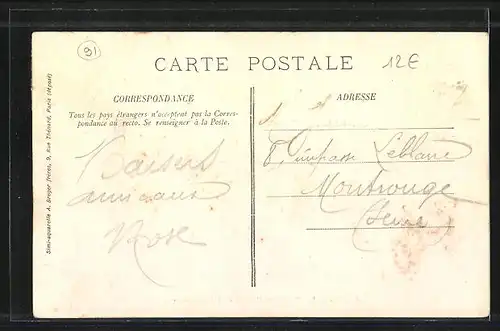 91
CARTE POSTALE
12€
CORRESPONDANCE
ADRESSE
Tous les pays étrangers n'acceptent pas la Corres-
pondance au recto. Se renseigner à la Poste.
8, impasse Leblanc
Montrouge
(Seine)
Baisers
amicaux
Rose
Simili-aquarelle A. Breger frères, 9, Rue Thénard, Paris (déposé)